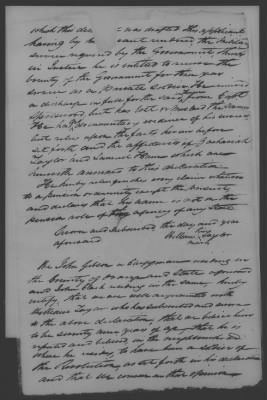 which this dec was drafted this applicant
having by
service required by the Government thinks
in Justice he is entitled to receive the
bounty of the Government for three years
service as a private Soldier He received
a discharge in full for the said
specified but has lost or mislaid the same
He has no documentary evidence of his service
but relies upon the facts herein before
set forth and the affidavits of Zachariah
Taylor and Samuel which are
herewith annexed to this declaration
He hereby relinquishes every claim whatever
to a pension or annuity except the present
and declares that his name is not on the
pension role of agency of any state
Sworn and subscribed the day and year
aforesaid
his
William Taylor
mark
We John Gibson a Clergyman residing in
the County of Orange and State aforesaid
and John residing in the same hereby
certify that we are well acquainted with
William Taylor who has subscribed and sworn
to the above declaration that we believe him
to be seventy nine years of age that he is
reputed and believed in the neighborhood
where he resides to have been a soldier of
the Revolution as set forth in his declaration
and that we concur in that opinion